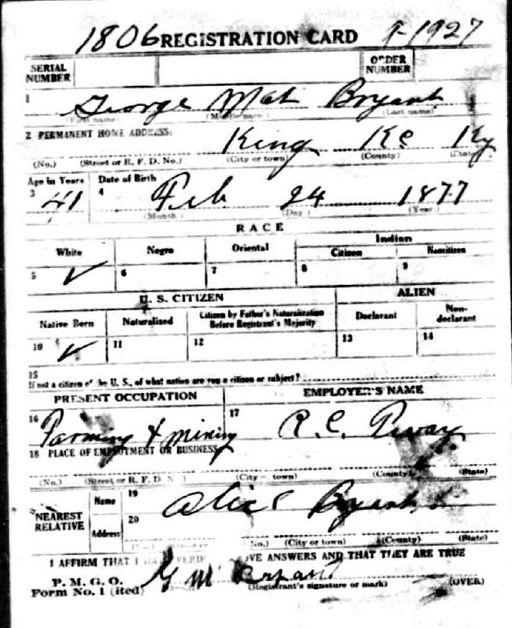 1806 REGISTRATION CARD 9-1927
SERIAL NUMBER ORDER NUMBER
1 George Mat Bryant
(First name) (Middle name) (Last name)
2 PERMANENT HOME ADDRESS:
King Ky
(No.) (Street or R. F. D. No.) (City or town) (County) (State)
Age in Years Date of Birth
3 41 4 Feb 24 1877
(Month) (Day) (Year)
RACE
White Negro Oriental Indian
Citizen Noncitizen
5 ✓ 6 7 8 9
U. S. CITIZEN ALIEN
Native Born Naturalized Citizen by Father's Naturalization Before Registrant's Majority Declarant Non-declarant
10 ✓ 11 12 13 14
15
If not a citizen of the U. S., of what nation are you a citizen or subject?
PRESENT OCCUPATION EMPLOYER'S NAME
16 Farming & mining 17 R. C.
18 PLACE OF EMPLOYMENT OR BUSINESS
(No.) (Street or R. F. D. No.) (City or town) (County) (State)
NEAREST RELATIVE Name 19 Alice Bryant
Address 20
(No.) (City or town) (County) (State)
I AFFIRM THAT I HAVE VERIF OVE ANSWERS AND THAT THEY ARE TRUE
P. M. G. O.
Form No. 1 (Red) G M Bryant
(Registrant's signature or mark) (OVER)